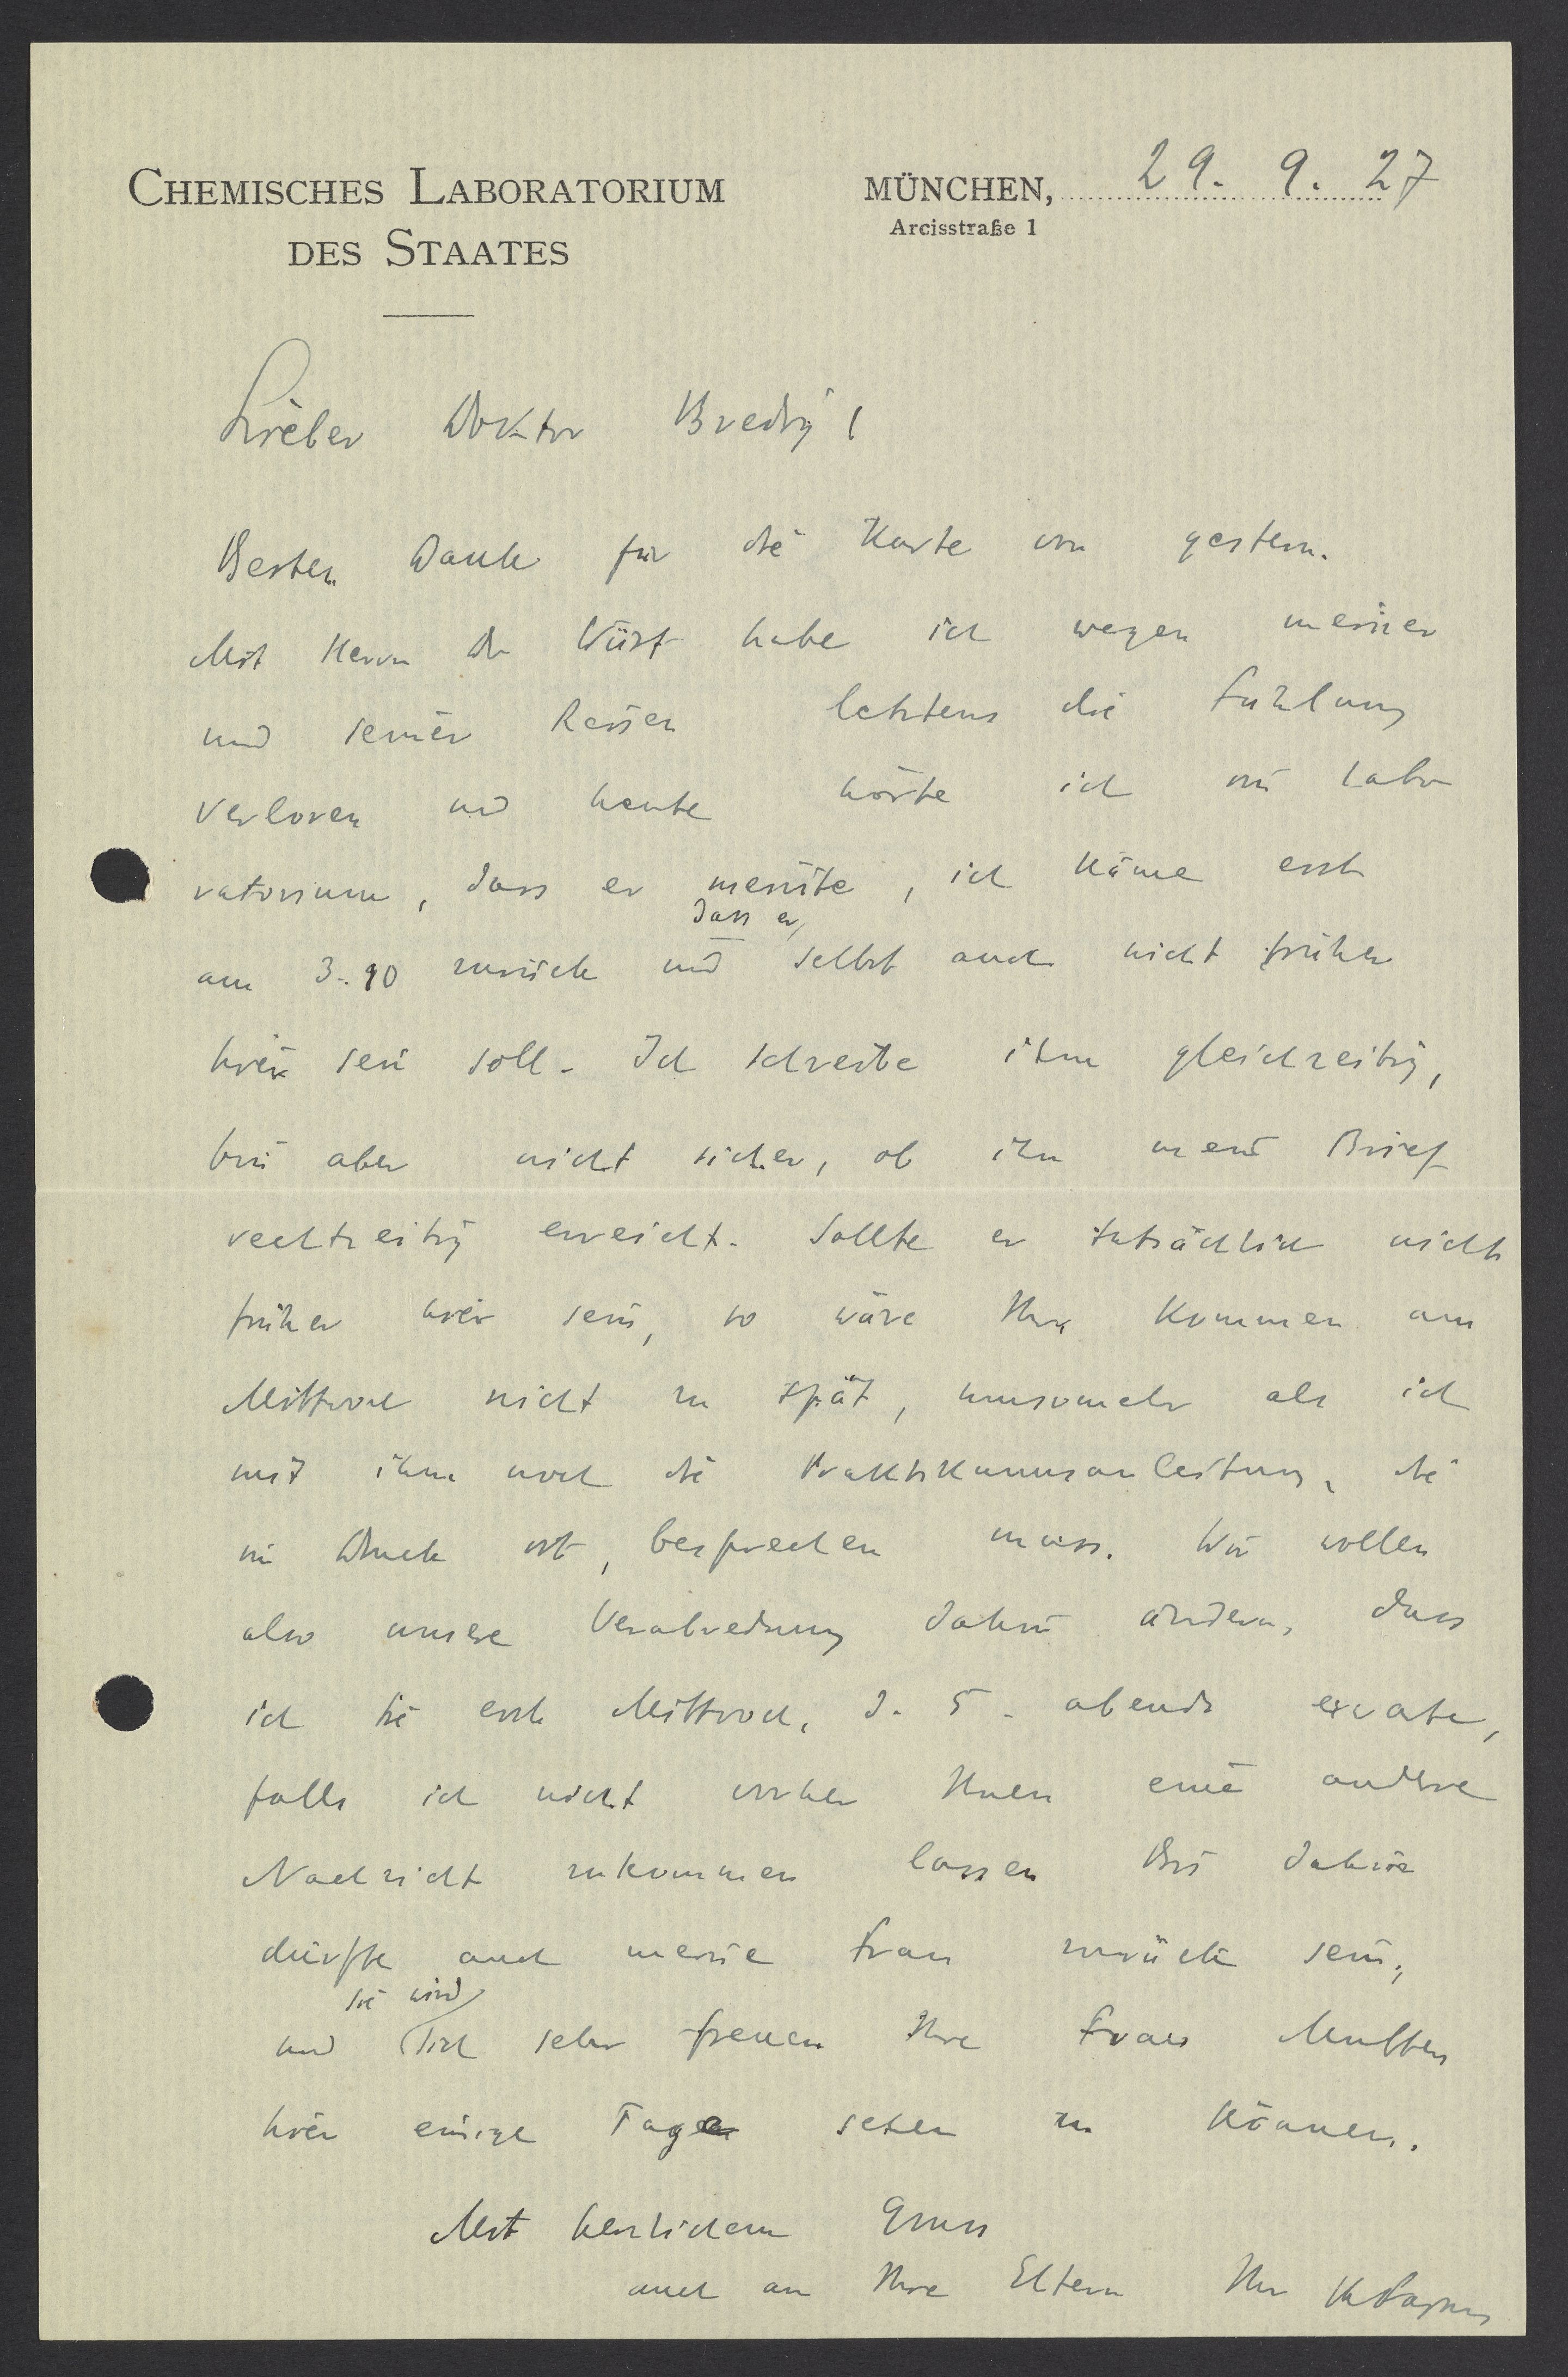 CHEMISCHES LABORATORIUM
DES STAATES
MÜNCHEN, 29. 9. 27
Arcisstraße 1
Lieber Doktor Bredig!
Besten Dank für die Karte von gestern.
Mit Herrn Dr Wüst habe ich wegen meiner
und seiner Reisen letztens die Fühlung
verloren und heute hörte ich im Labo
ratorium, dass er meinte, ich käme erst
am 3. 10 zurück und dass er selbst auch nicht früher
hier sein soll. Ich schreibe ihm gleichzeitig,
bin aber nicht sicher, ob ihn mein Brief
rechtzeitig erreicht. Sollte er tatsächlich nicht
früher hier sein, so wäre Ihr Kommen am
Mittwoch nicht zu spät, umsomehr als ich
mit ihm noch die Praktikumsanleitung, die
im Druck ist, besprechen muss. Wir wollen
also unsere Verabredung dahin ändern, dass
ich Sie erst Mittwoch, d. 5. abends erwarte,
falls ich nicht vorher Ihnen eine andere
Nachricht zukommen lassen Bis dahin
dürfte auch meine Frau zurück sein,
und sie wird sich sehr freuen Ihre Frau Mutter
hier einige Tage sehen zu können.
Mit herzlichem Gruss
auch an Ihre Eltern Ihr K Fajans